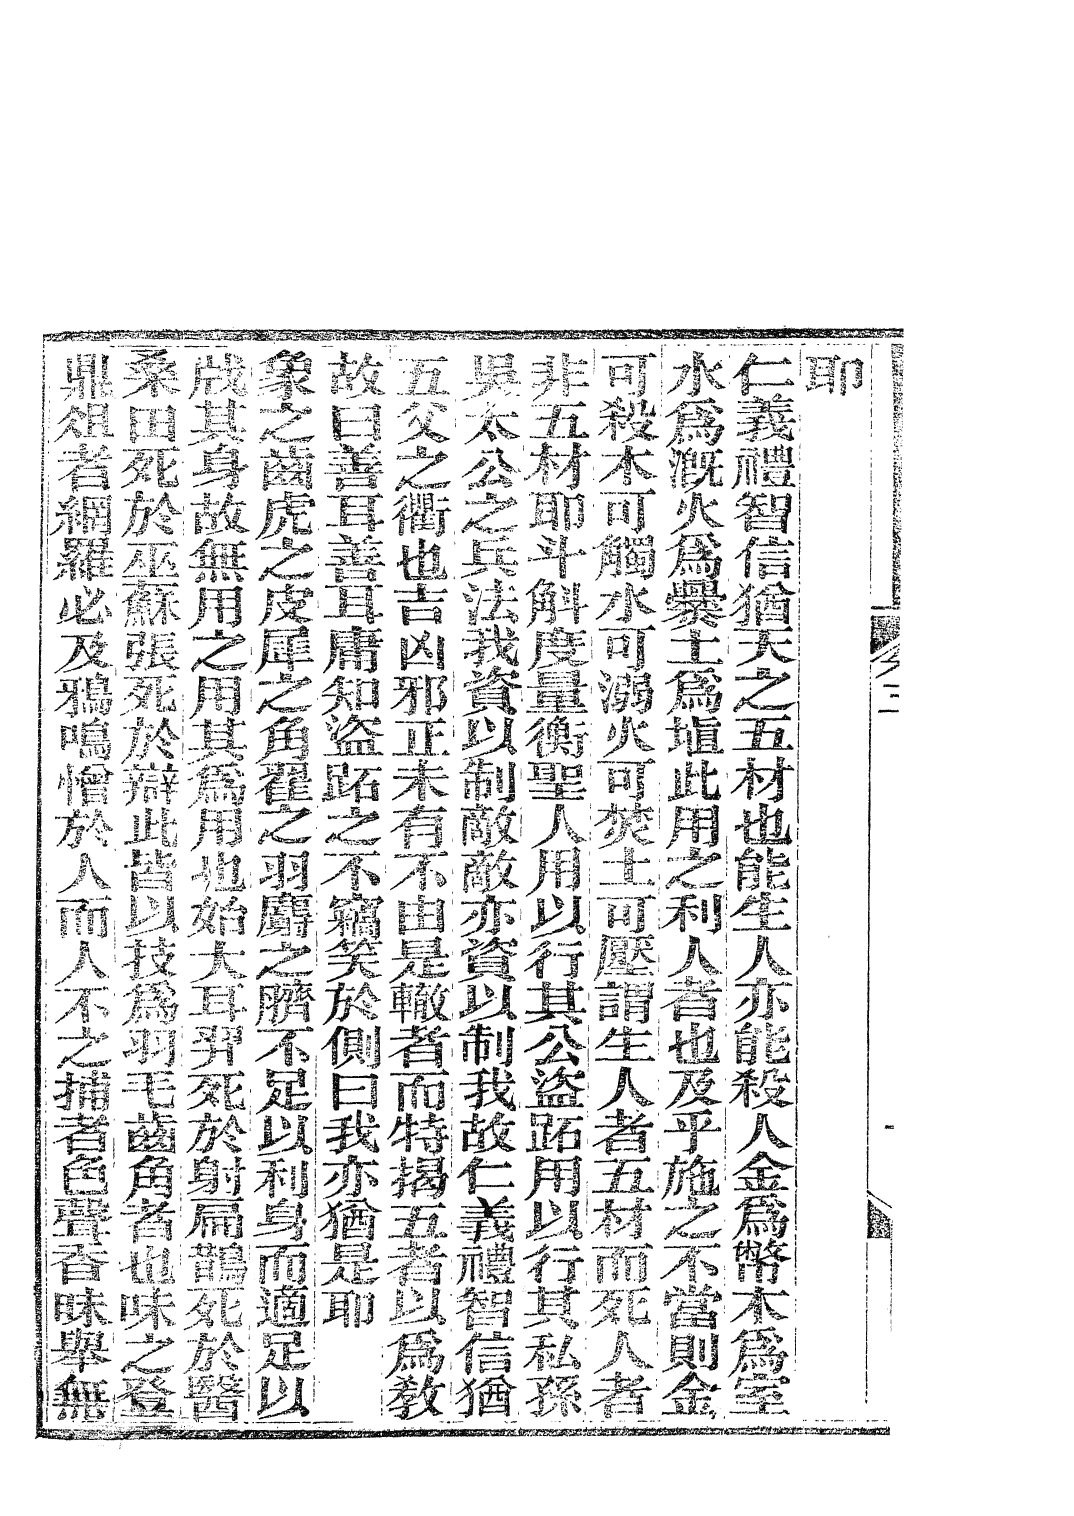 耶
仁義禮智信猶天之五材也能生人亦能殺人金爲幣木爲室
水爲溉火爲爨土爲埴此用之利人者也及乎施之不當則金
可殺木可觸水可溺火可焚土可壓謂生人者五材而死人者
非五材耶斗斛度量衡聖人用以行其公盜跖用以行其私孫
吳太公之兵法我資以制敵敵亦資以制我故仁義禮智信猶
五父之衢也吉凶邪正未有不由是轍者而特揭五者以爲敎
故曰善耳善耳庸知盜跖之不竊笑於側曰我亦猶是耶
象之齒虎之皮犀之角翟之羽麝之臍不足以利身而適足以
戕其身故無用之用其爲用也始大耳羿死於射扁鵲死於醫
桑田死於巫蘇張死於辯此皆以技爲羽毛齒角者也味之登
鼎俎者網羅必及鴉鳴憎於人而人不之捕者色聲香味舉無